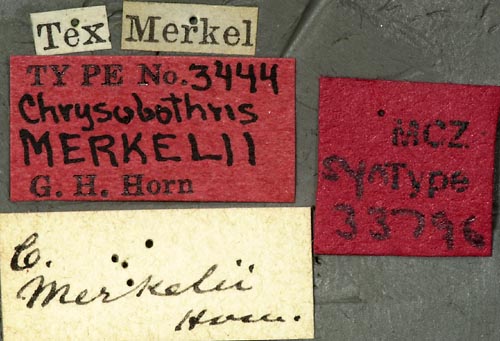 Tex
Merkel
TYPE No. 3444
Chrysobothris
MERKELII
G. H. Horn
MCZ
SynType
33796
C.
Merkelii
Horn.